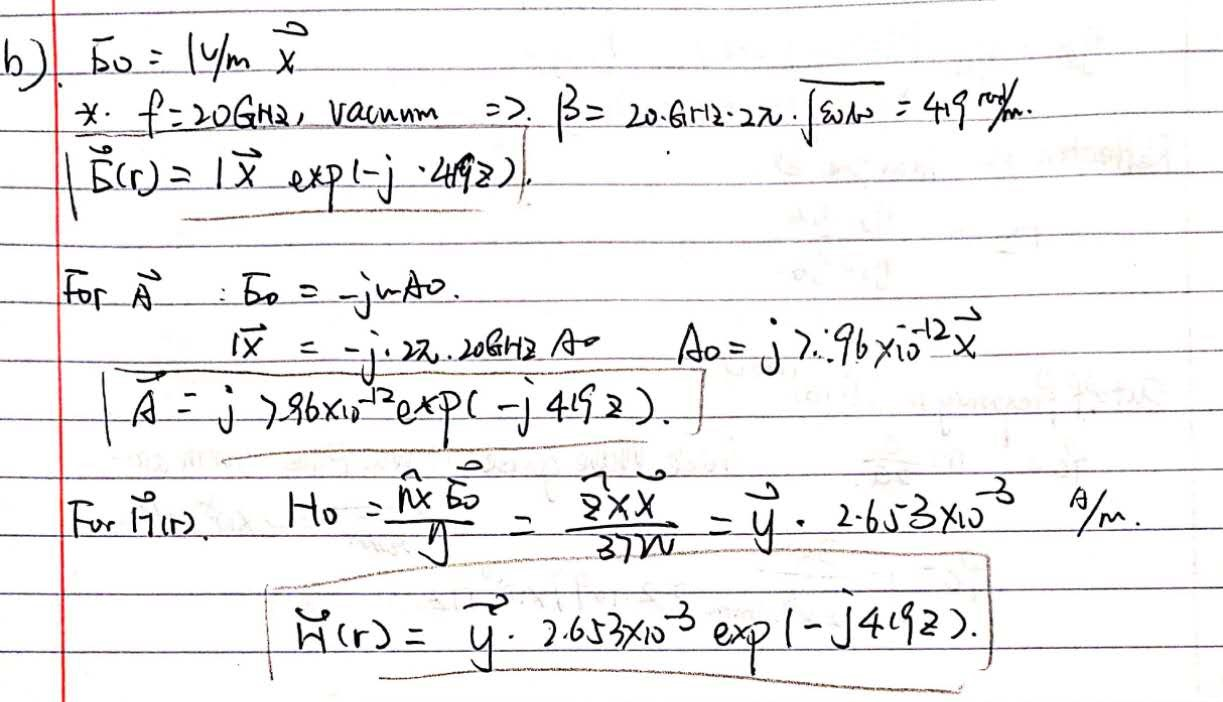 b). E₀ = 1V/m x⃗
*. f=20GHz, vacuum => β = 20·GHz·2π·√ε₀μ₀ = 419 rad/m.
E⃗(r) = 1x⃗ exp(-j·419z).
For A⃗ : E₀ = -jωA₀.
1x⃗ = -j·2π·20GHz A₀ A₀ = j 7.96×10⁻¹² x⃗
A⃗ = j 7.96×10⁻¹² exp(-j 419 z).
For H⃗(r). H₀ = n̂×E⃗₀/η = z⃗×x⃗/377Ω = y⃗ · 2.653×10⁻³ A/m.
H⃗(r) = y⃗· 2.653×10⁻³ exp(-j419z).